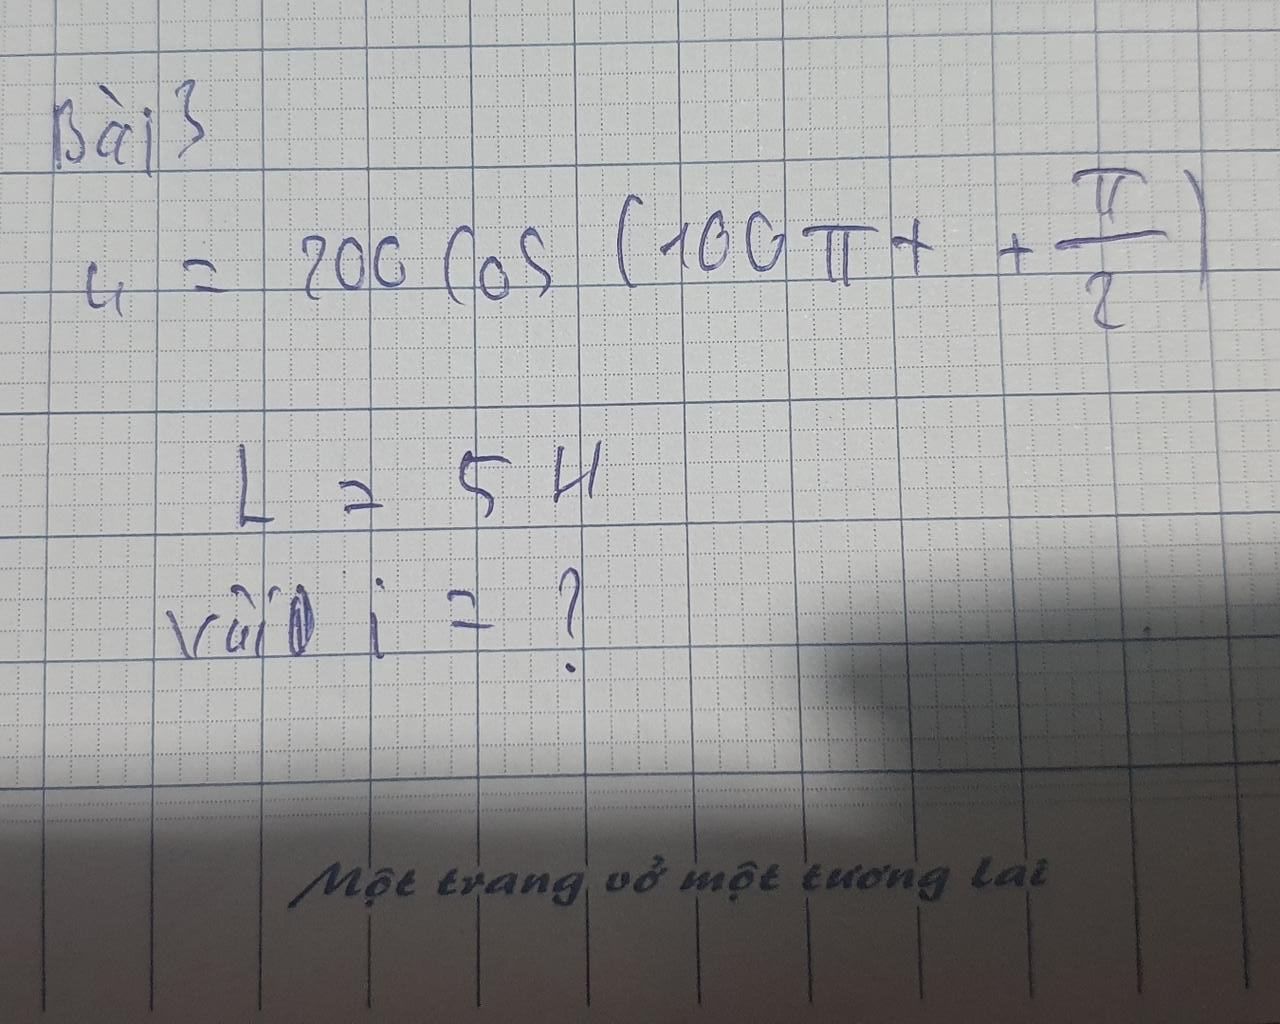 Bài 3
u = 200 Cos (100π t + π/2)
L = 5 H
Viết i = ?
Một trang vở một tương lai